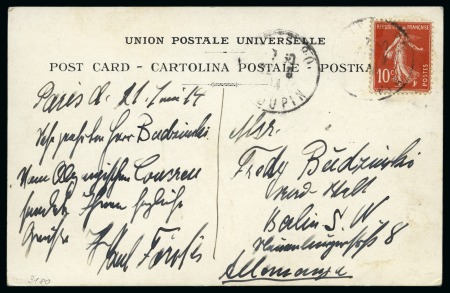 UNION POSTALE UNIVERSELLE
POST CARD – CARTOLINA POSTALE – POSTKA
REPUBLIQUE FRANÇAISE
10
POSTES
DUPIN
Paris d. 21 Juni 14
Sehr geehrten Herr Budzinski
Vom Olympischen Congress
sendet Ihnen herzliche
Grüsse
Mr.
Fredy Budzinski
Rad-Welt
Berlin S. W.
8
Allemagne
3180